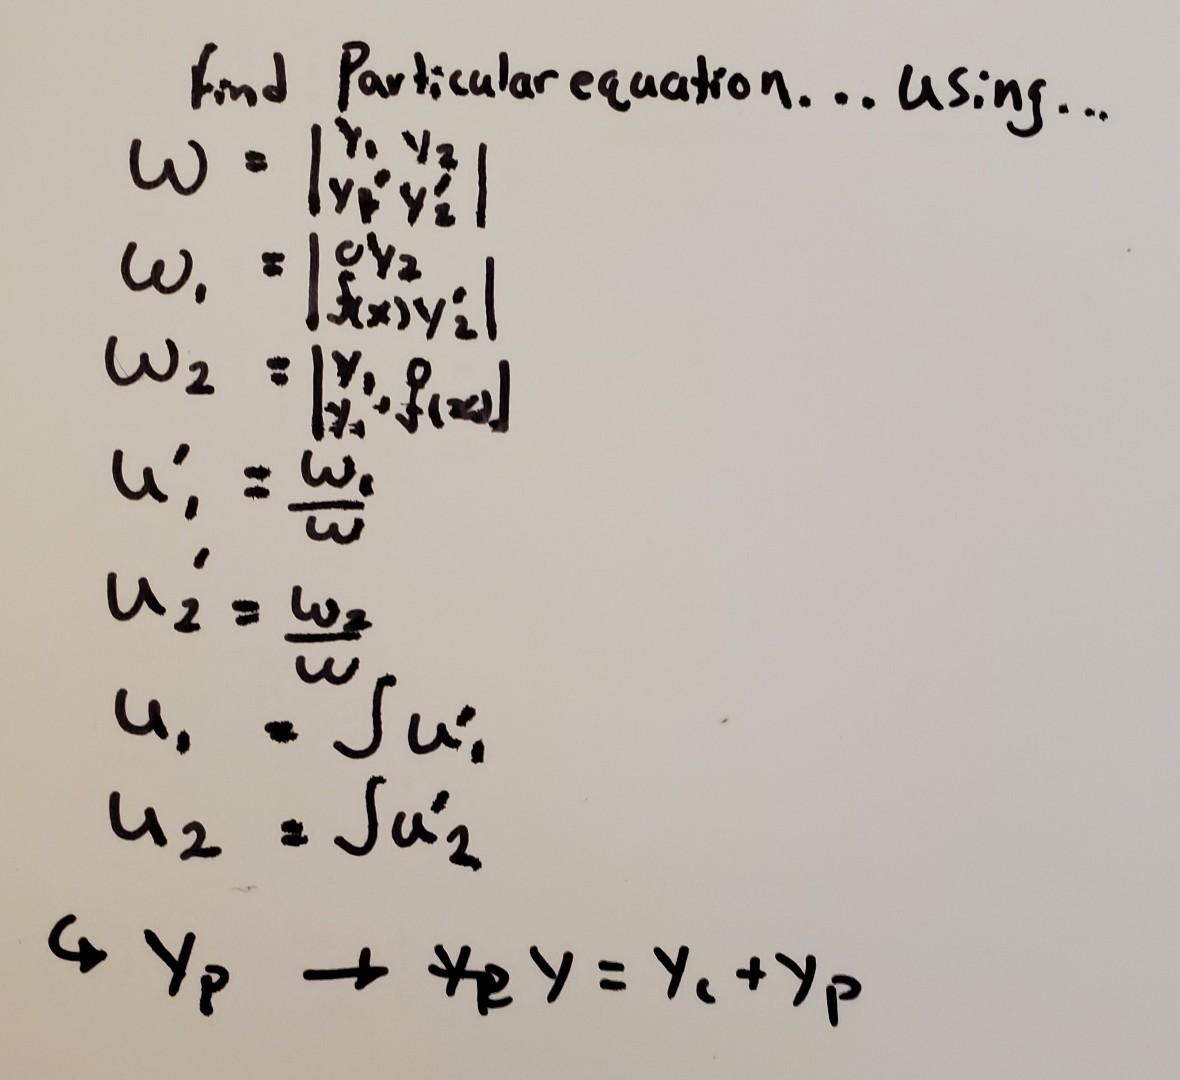 find Particular equation... using...
W = | y₁ y₂ |
| y₁' y₂' |
W₁ = | 0 y₂ |
| f(x) y₂' |
W₂ = | y₁ 0 |
| y₁' f(x) |
u'₁ = W₁/W
u₂' = W₂/W
u₁ = ∫u'₁
u₂ = ∫u'₂
↪ yp → y = yc + yp